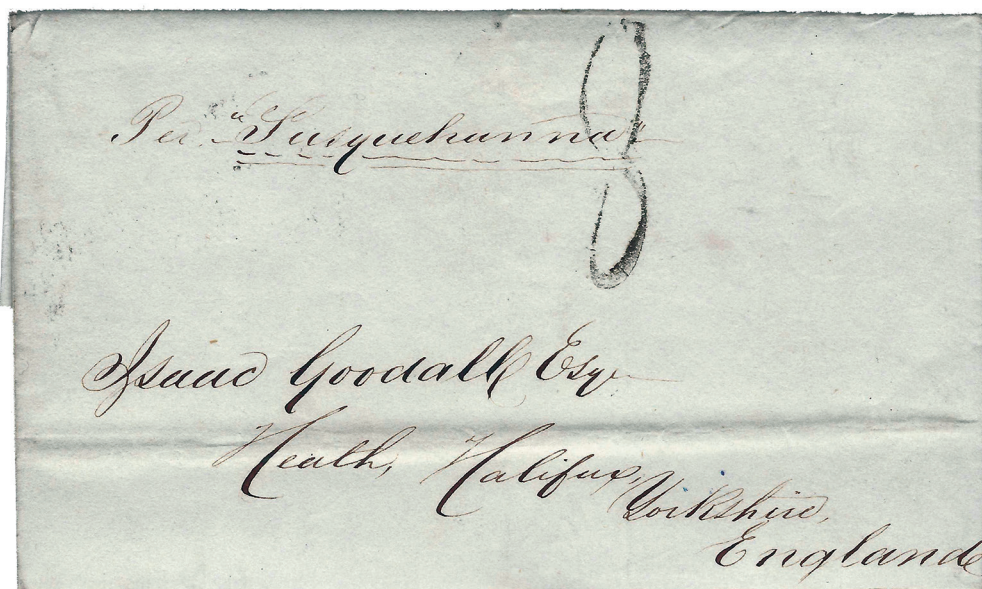 8
Per "Susquehanna"
Isaac Goodall Esqr
Heath, Halifax,
Yorkshire,
England